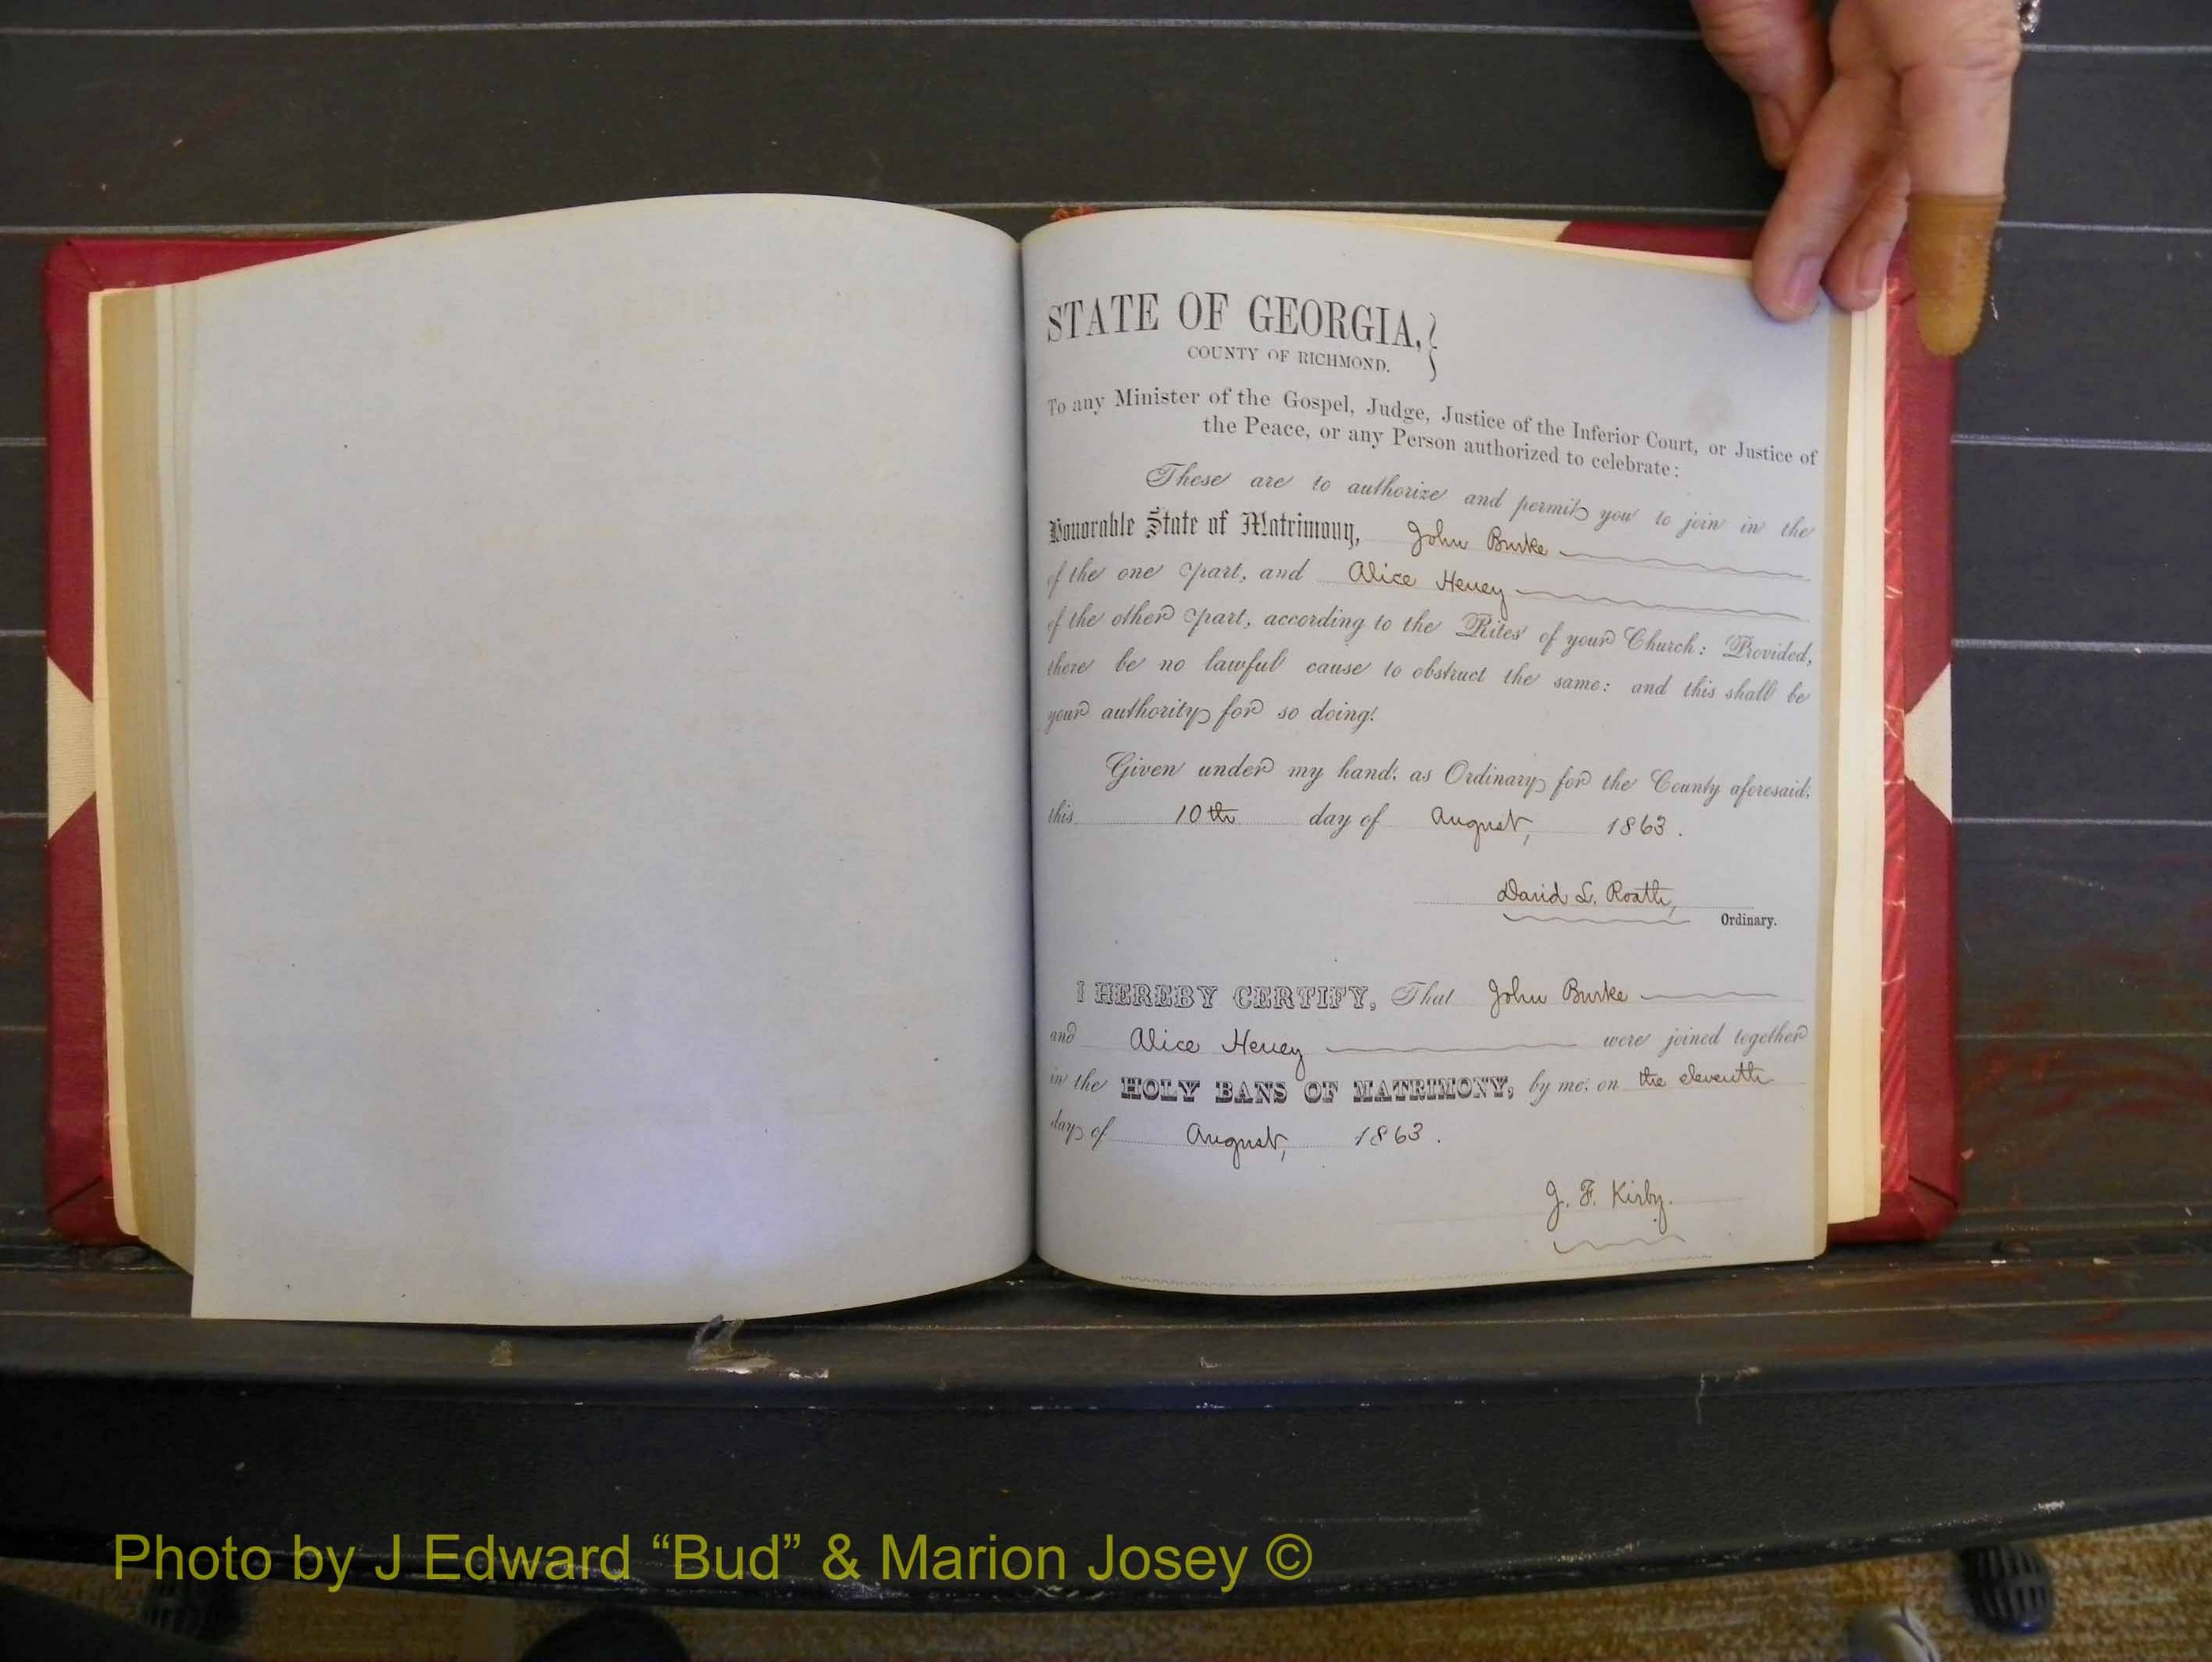 STATE OF GEORGIA,
COUNTY OF RICHMOND.
To any Minister of the Gospel, Judge, Justice of the Inferior Court, or Justice of
the Peace, or any Person authorized to celebrate:
These are to authorize and permit you to join in the
Honorable State of Matrimony, John Burke
of the one part, and Alice Heney
of the other part, according to the Rites of your Church: Provided,
there be no lawful cause to obstruct the same: and this shall be
your authority for so doing.
Given under my hand, as Ordinary for the County aforesaid,
this 10th day of August, 1863.
David L. Roath,
Ordinary.
I HEREBY CERTIFY, That John Burke
and Alice Heney were joined together
in the HOLY BANS OF MATRIMONY, by me, on the eleventh
day of August, 1863.
J. F. Kirby.
Photo by J Edward “Bud” & Marion Josey ©